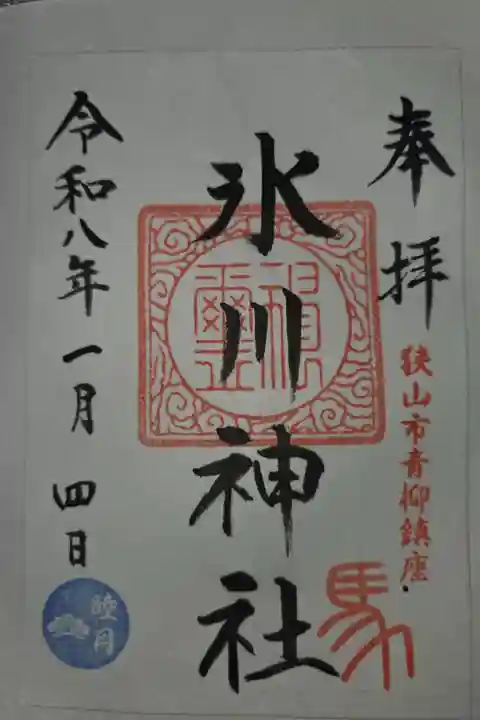 奉拝
狭山市青柳鎮座
氷川神社
馬
令和八年一月四日
睦月